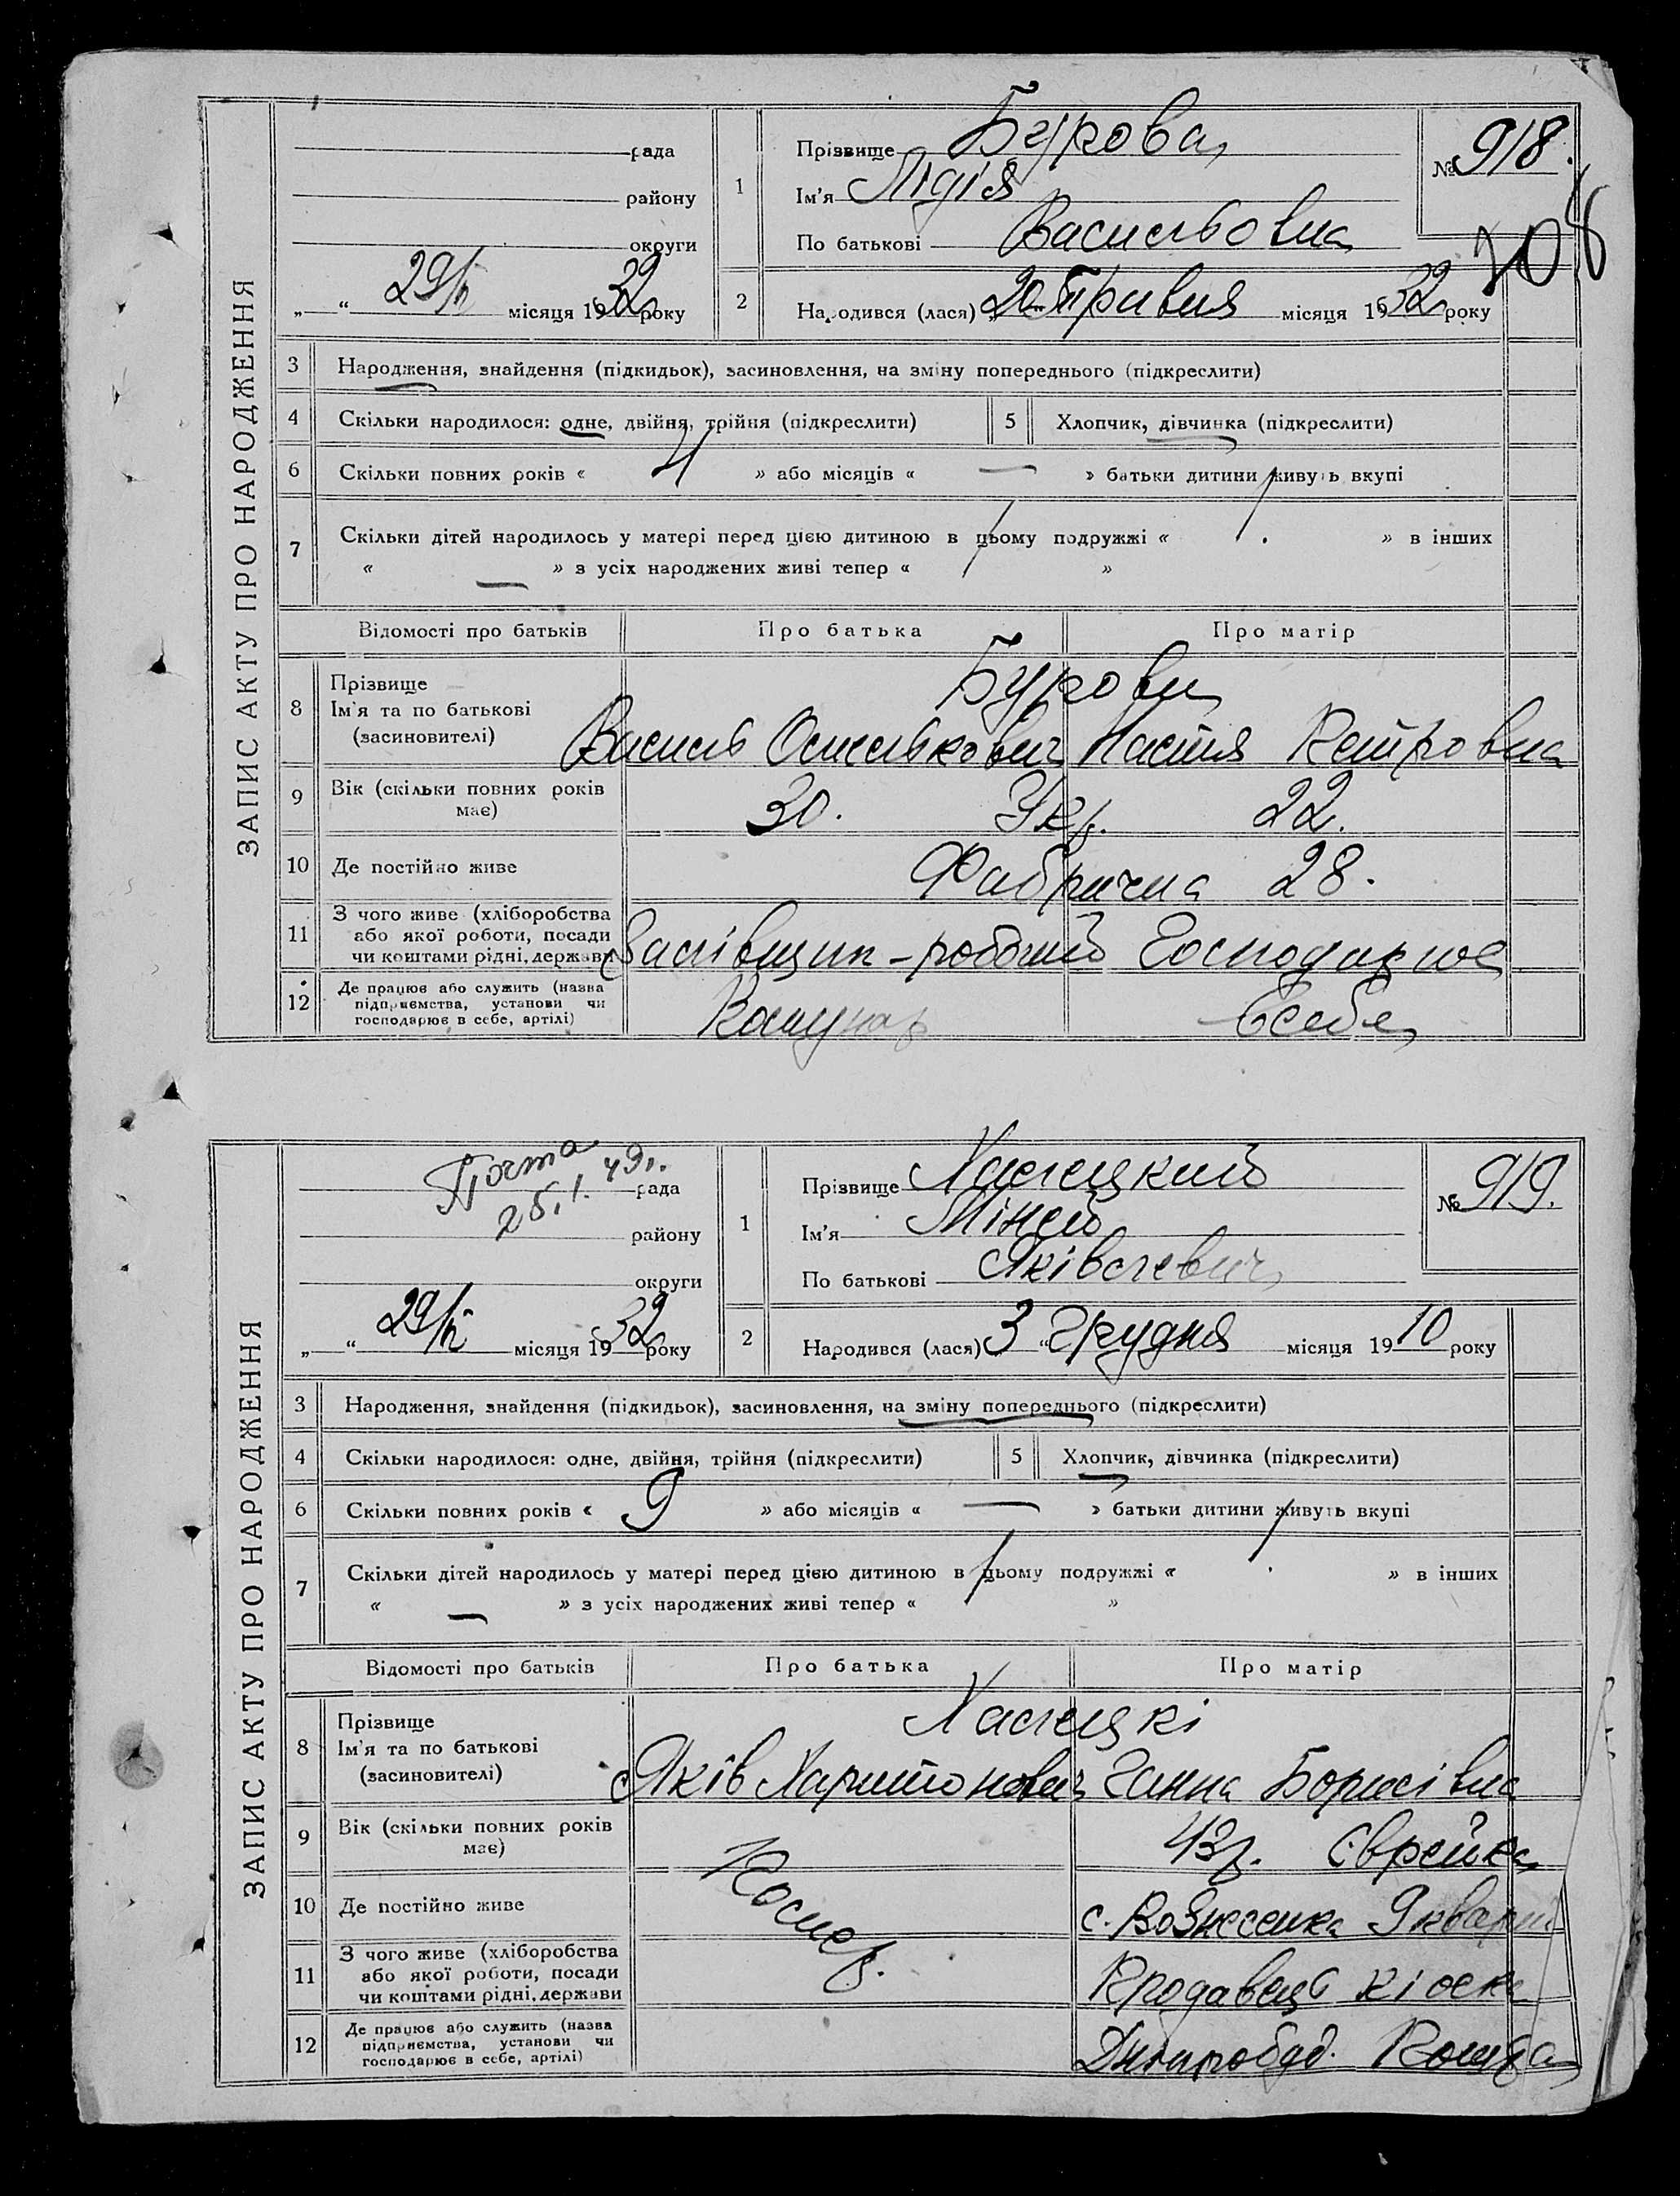 ЗАПИС АКТУ ПРО НАРОДЖЕННЯ
рада
району
округи
„ “ 29/V місяця 1932 року
1
Прізвище Бурова
Ім'я Лідія
По батькові Васильовна
№ 918.
108
2
Народився (лася) „20“ Травня місяця 1932 року
3 Народження, знайдення (підкидьок), засиновлення, на зміну попереднього (підкреслити)
4 Скільки народилося: одне, двійня, трійня (підкреслити) 5 Хлопчик, дівчинка (підкреслити)
6 Скільки повних років « 4 » або місяців « — » батьки дитини живуть вкупі
7 Скільки дітей народилось у матері перед цією дитиною в цьому подружжі « 1 » в інших
« — » з усіх народжених живі тепер « 1 »
Відомості про батьків Про батька Про матір
8 Прізвище
Ім'я та по батькові
(засиновителі)
Бурови
Василь Омелькович Настя Петровна
9 Вік (скільки повних років має) 30. Укр. 22.
10 Де постійно живе Фабрична 28.
11 З чого живе (хліборобства
або якої роботи, посади
чи коштами рідні, держави
робочий Господарює
12 Де працює або служить (назва
підприємства, установи чи
господарює в себе, артілі)
Комунар в себе
ЗАПИС АКТУ ПРО НАРОДЖЕННЯ
Почта
25.I. 49г.
рада
району
округи
„ “ 29/V місяця 1932 року
1
Прізвище Хаслецкий
Ім'я Міней
По батькові Яківлевич
№ 919.
2
Народився (лася) „3“ Грудня місяця 1910 року
3 Народження, знайдення (підкидьок), засиновлення, на зміну попереднього (підкреслити)
4 Скільки народилося: одне, двійня, трійня (підкреслити) 5 Хлопчик, дівчинка (підкреслити)
6 Скільки повних років « 9 » або місяців « — » батьки дитини живуть вкупі
7 Скільки дітей народилось у матері перед цією дитиною в цьому подружжі « 1 » в інших
« — » з усіх народжених живі тепер « 1 »
Відомості про батьків Про батька Про матір
8 Прізвище
Ім'я та по батькові
(засиновителі)
Хаслецкі
Яків Харитонович Ганна Борисівна
9 Вік (скільки повних років має) 43р. Єврейка
Помер.
10 Де постійно живе с. Вознесенка 9 кварт
11 З чого живе (хліборобства
або якої роботи, посади
чи коштами рідні, держави
Продавець кіоска
12 Де працює або служить (назва
підприємства, установи чи
господарює в себе, артілі)
Дніпробуд.